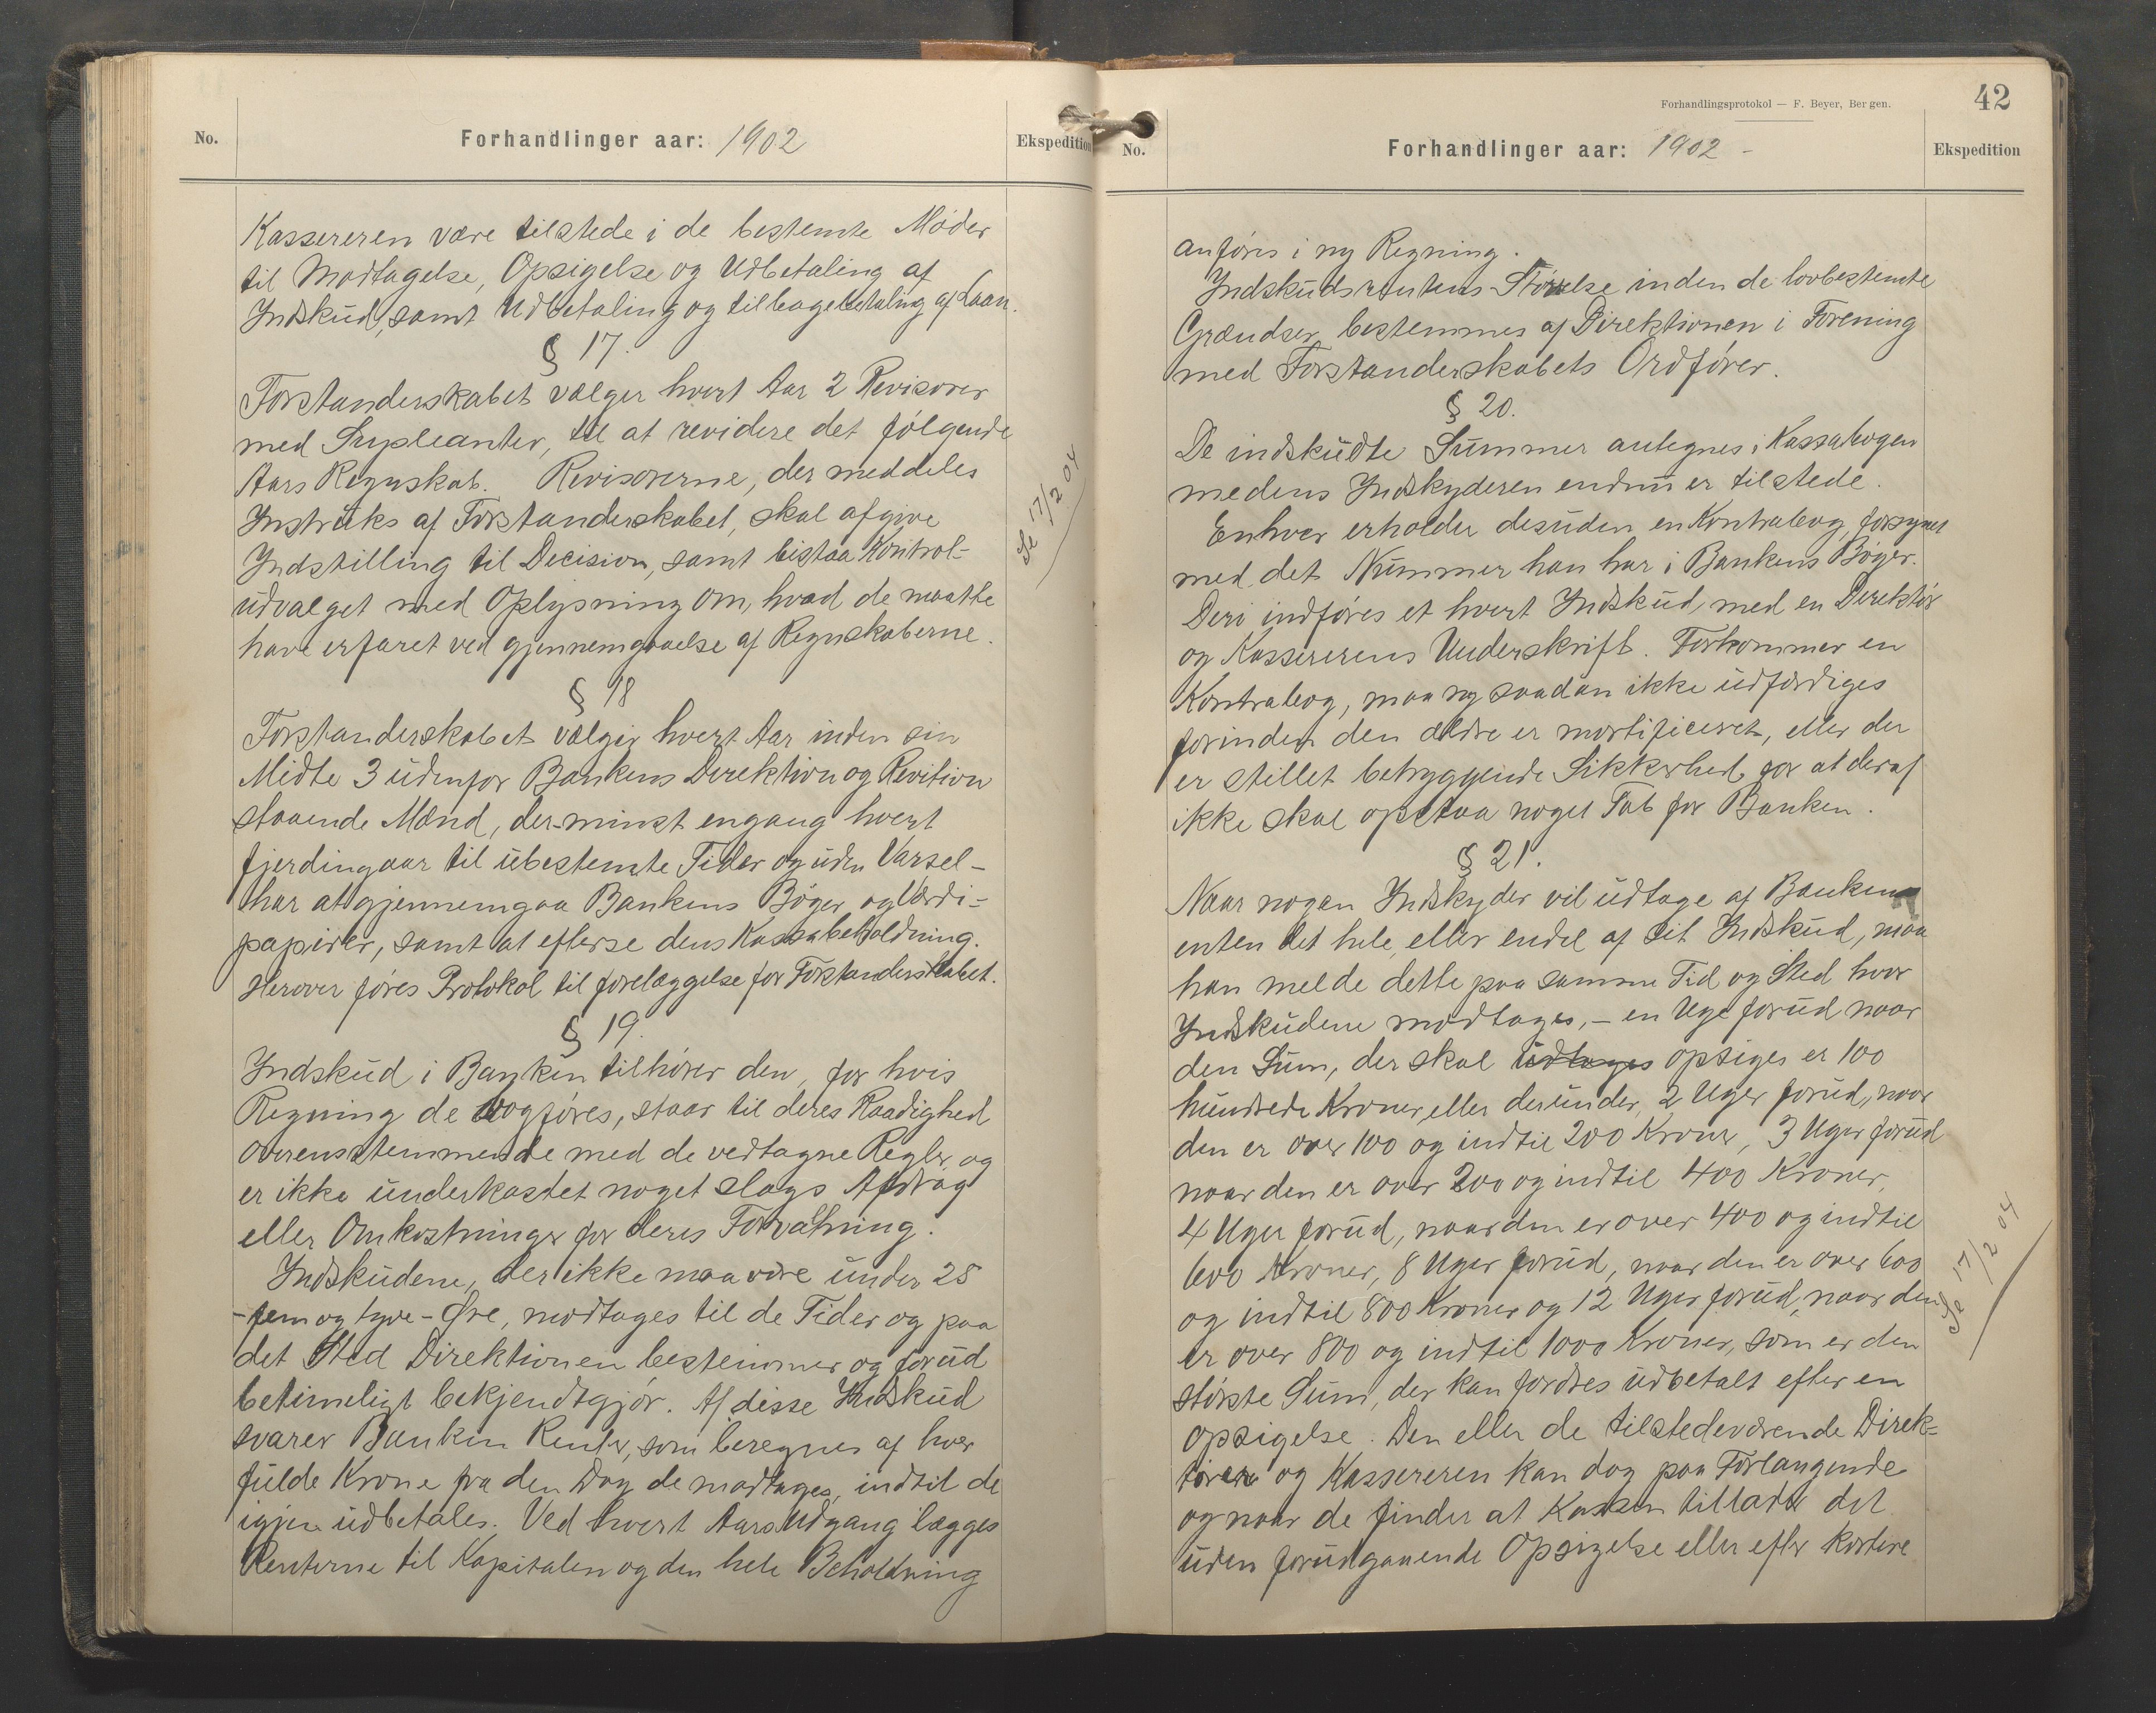 No.
Forhandlinger aar: 1902
Ekspedition
Kassereren være tilstede i de bestemte Møder
til Modtagelse, Opsigelse og Udbetaling af
Indskud, samt Udbetaling og tilbagebetaling af Laan.
§ 17.
Forstanderskabet vælger hvert Aar 2 Revisorer
med Supleanter, til at revidere det følgende
Aars Regnskab. Revisorerne, der meddeles
Instruks af Forstanderskabet, skal afgive
Indstilling til Decision, samt bistaa Kontrol-
udvalget med Oplysning om, hvad de maatte
have erfaret ved gjennemgaaelse af Regnskaberne.
Se 17/2 04
§ 18
Forstanderskabet vælger hvert Aar inden sin
Midte 3 udenfor Bankens Direktion og Revition
staaende Mænd, der minst engang hvert
fjerdingaar til ubestemte Tider og uden Varsel-
har at gjennemgaa Bankens Bøger og Værdi-
papirer, samt at efterse dens Kassabeholdning.
Herover føres Protokol til forelæggelse for Forstanderskabet.
§ 19.
Indskud i Banken tilhører den, for hvis
Regning de bogføres, staar til deres Raadighed
overensstemmende med de vedtagne Regler og
er ikke underkastet noget slags Afdrag
eller Omkostninger for deres Forvaltning.
Indskudene, der ikke maa være under 25
-fem og tyve- Øre, modtages til de Tider og paa
det Sted Direktionen bestemmer og forud
betimeligt bekjendtgjør. Af disse Indskud
svarer Banken Renter, som beregnes af hver
fulde Krone fra den Dag de modtages, indtil de
igjen udbetales. Ved hvert Aars Udgang lægges
Renterne til Kapitalen og den hele Beholdning
Forhandlingsprotokol — F. Beyer, Bergen.
42
No.
Forhandlinger aar: 1902 -
Ekspedition
anføres i ny Regning.
Indskudsrentens Størrelse inden de lovbestemte
Grændser bestemmes af Direktionen i Forening
med Forstanderskabets Ordfører.
§ 20.
De indskudte Summer antegnes i Kassabogen
medens Indskyderen endnu er tilstede.
Enhver erholder desuden en Kontrabog, forsynet
med det Nummer han har i Bankens Bøger.
Deri indføres et hvert Indskud, med en Direktør
og Kassererens Underskrift. Forkommer en
Kontrabog, maa ny saadan ikke udfærdiges
forinden den ældre er mortificeret, eller der
er stillet betryggende Sikkerhed for at deraf
ikke skal opstaa noget Tab for Banken.
§ 21.
Naar nogen Indskyder vil udtage af Banken
enten det hele, eller endel af sit Indskud, maa
han melde dette paa samme Tid og Sted hvor
Indskudene modtages, - en Uge forud naar
den Sum, der skal udtages opsiges er 100
hundrede Kroner eller derunder, 2 Uger forud, naar
den er over 100 og indtil 200 Kroner, 3 Uger forud
naar den er over 200 og indtil 400 Kroner,
4 Uger forud, naar den er over 400 og indtil
600 Kroner, 8 Uger forud, naar den er over 600
og indtil 800 Kroner og 12 Uger forud, naar den
er over 800 og indtil 1000 Kroner, som er den
største Sum, der kan fordres udbetalt efter en
Opsigelse. Den eller de tilstedeværende Direk-
tører og Kassereren kan dog paa Forlangende
og naar de finder at Kassen tillader det
uden forudgaaende Opsigelse eller efter kortere
Se 17/2 04